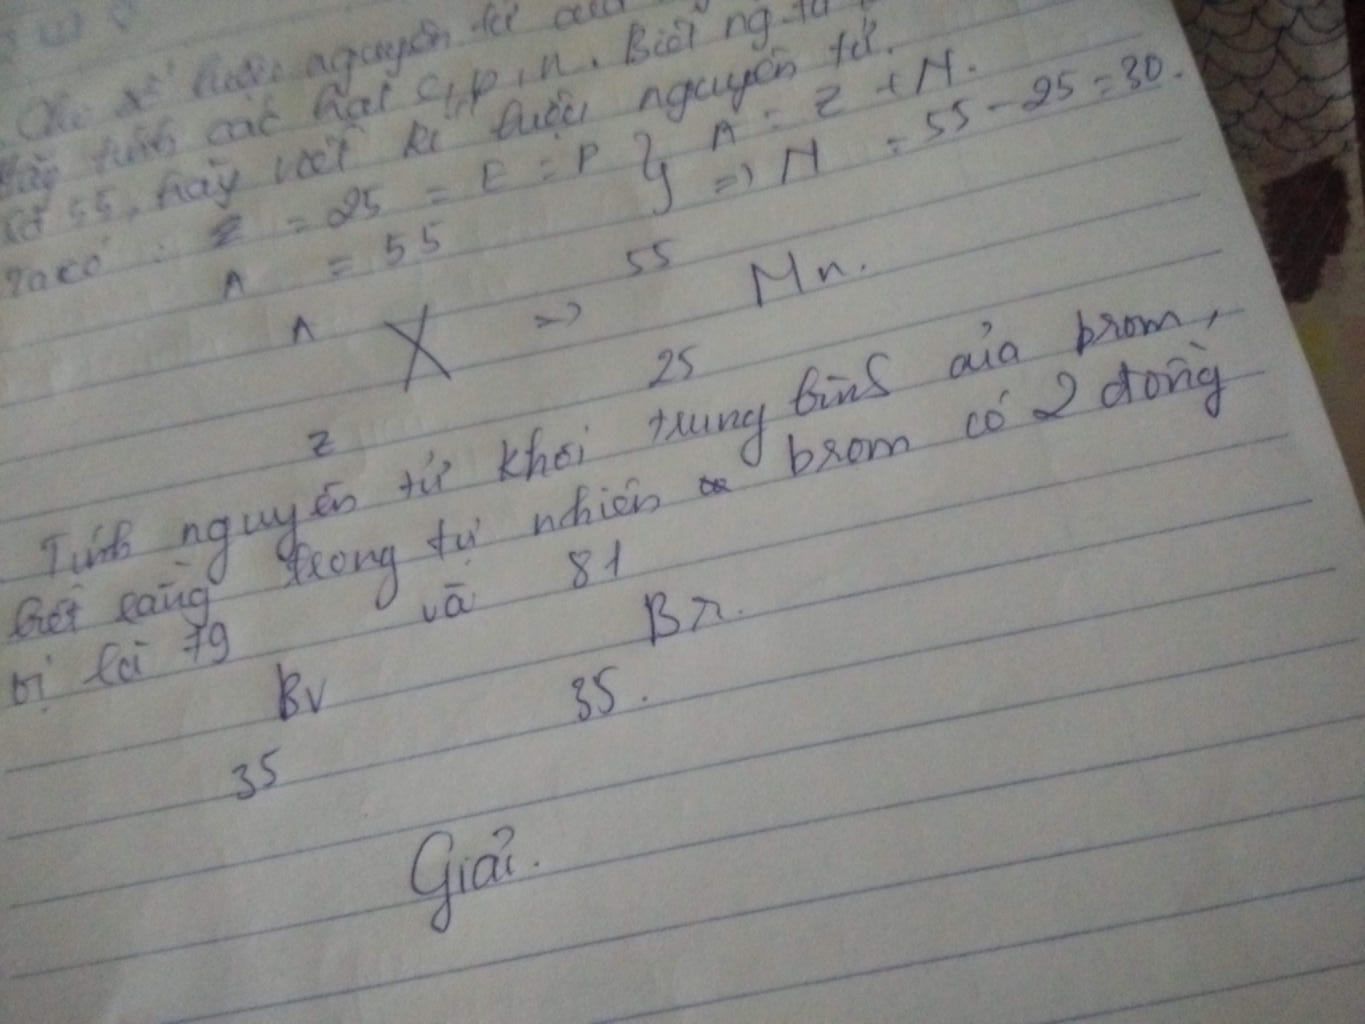 Cho số hiệu nguyên tử của
Hãy tính các hạt e, p, n. Biết ng.tử
là 55, hãy viết kí hiệu nguyên tử.
Ta có : Z = 25 = E = P } A = Z + N.
A = 55 => N = 55 - 25 = 30.
A 55
X => Mn.
Z 25
Tính nguyên tử khối trung bình của brom,
biết rằng trong tự nhiên brom có 2 đồng
vị là 79 và 81
Br Br.
35 35.
Giải.